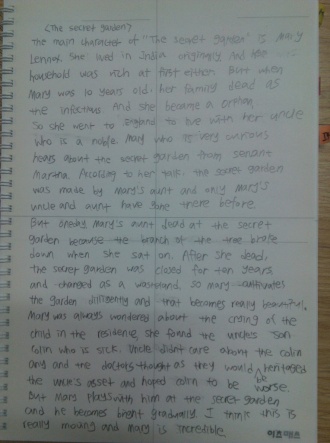 <The secret garden>
The main character of "The secret garden" is Mary
Lennox. She lived in India originally and her
household was rich at first either. But when
Mary was 10 years old, her family dead as
the infectious And she became a orphan.
So she went to England to live with her uncle
who is a noble. Mary who is very curious
hears about the secret garden from servant
Martha. According to her talk, the secret garden
was made by Mary's aunt and only Mary's
uncle and aunt have gone there before.
But oneday Mary's aunt dead at the secret
garden because the branch of the tree broke
down when she sat on. After she dead,
the secret garden was closed for ten years
and changed as a wasteland. So Mary
the garden diligently and that becomes really beautiful.
Mary was always wondered about the crying of the
child in the residence she found the uncle's son
Colin who is sick. Uncle didn't care about the colin
any and the doctors thought as they would heritaged
the uncle's asset and hoped colin to be worse.
But Mary plays with him at the secret garden
and he becomes bright gradually I think this is
really moving and mary is incredible.